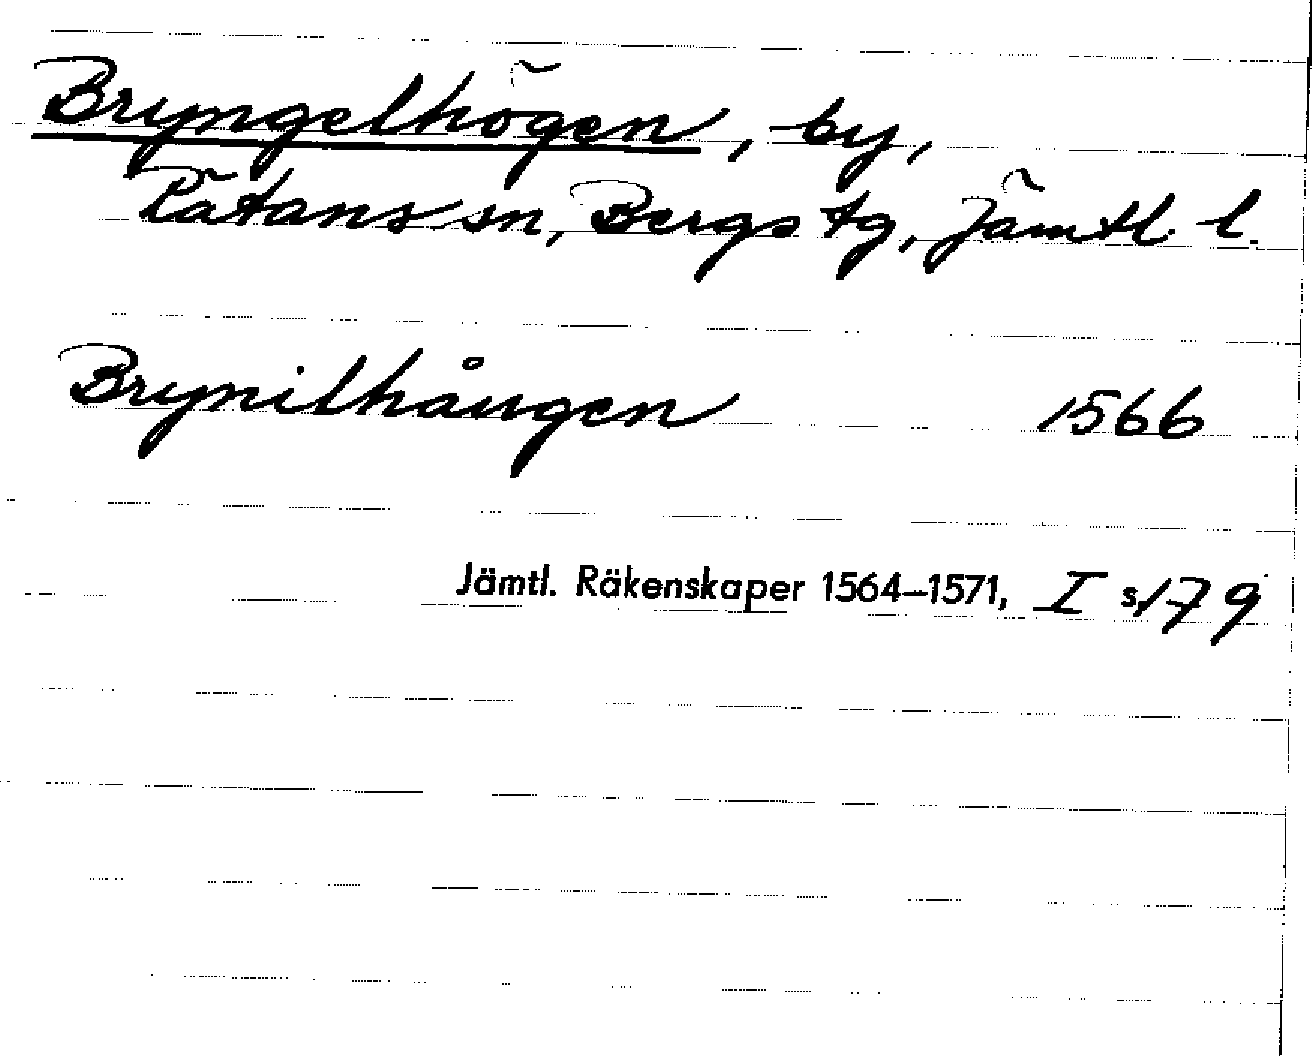 Bryngelhögen, by,
Rätans sn, Bergs tg, Jämtl. l.
Brynilhåugen 1566
Jämtl. Räkenskaper 1564–1571, I s. 179